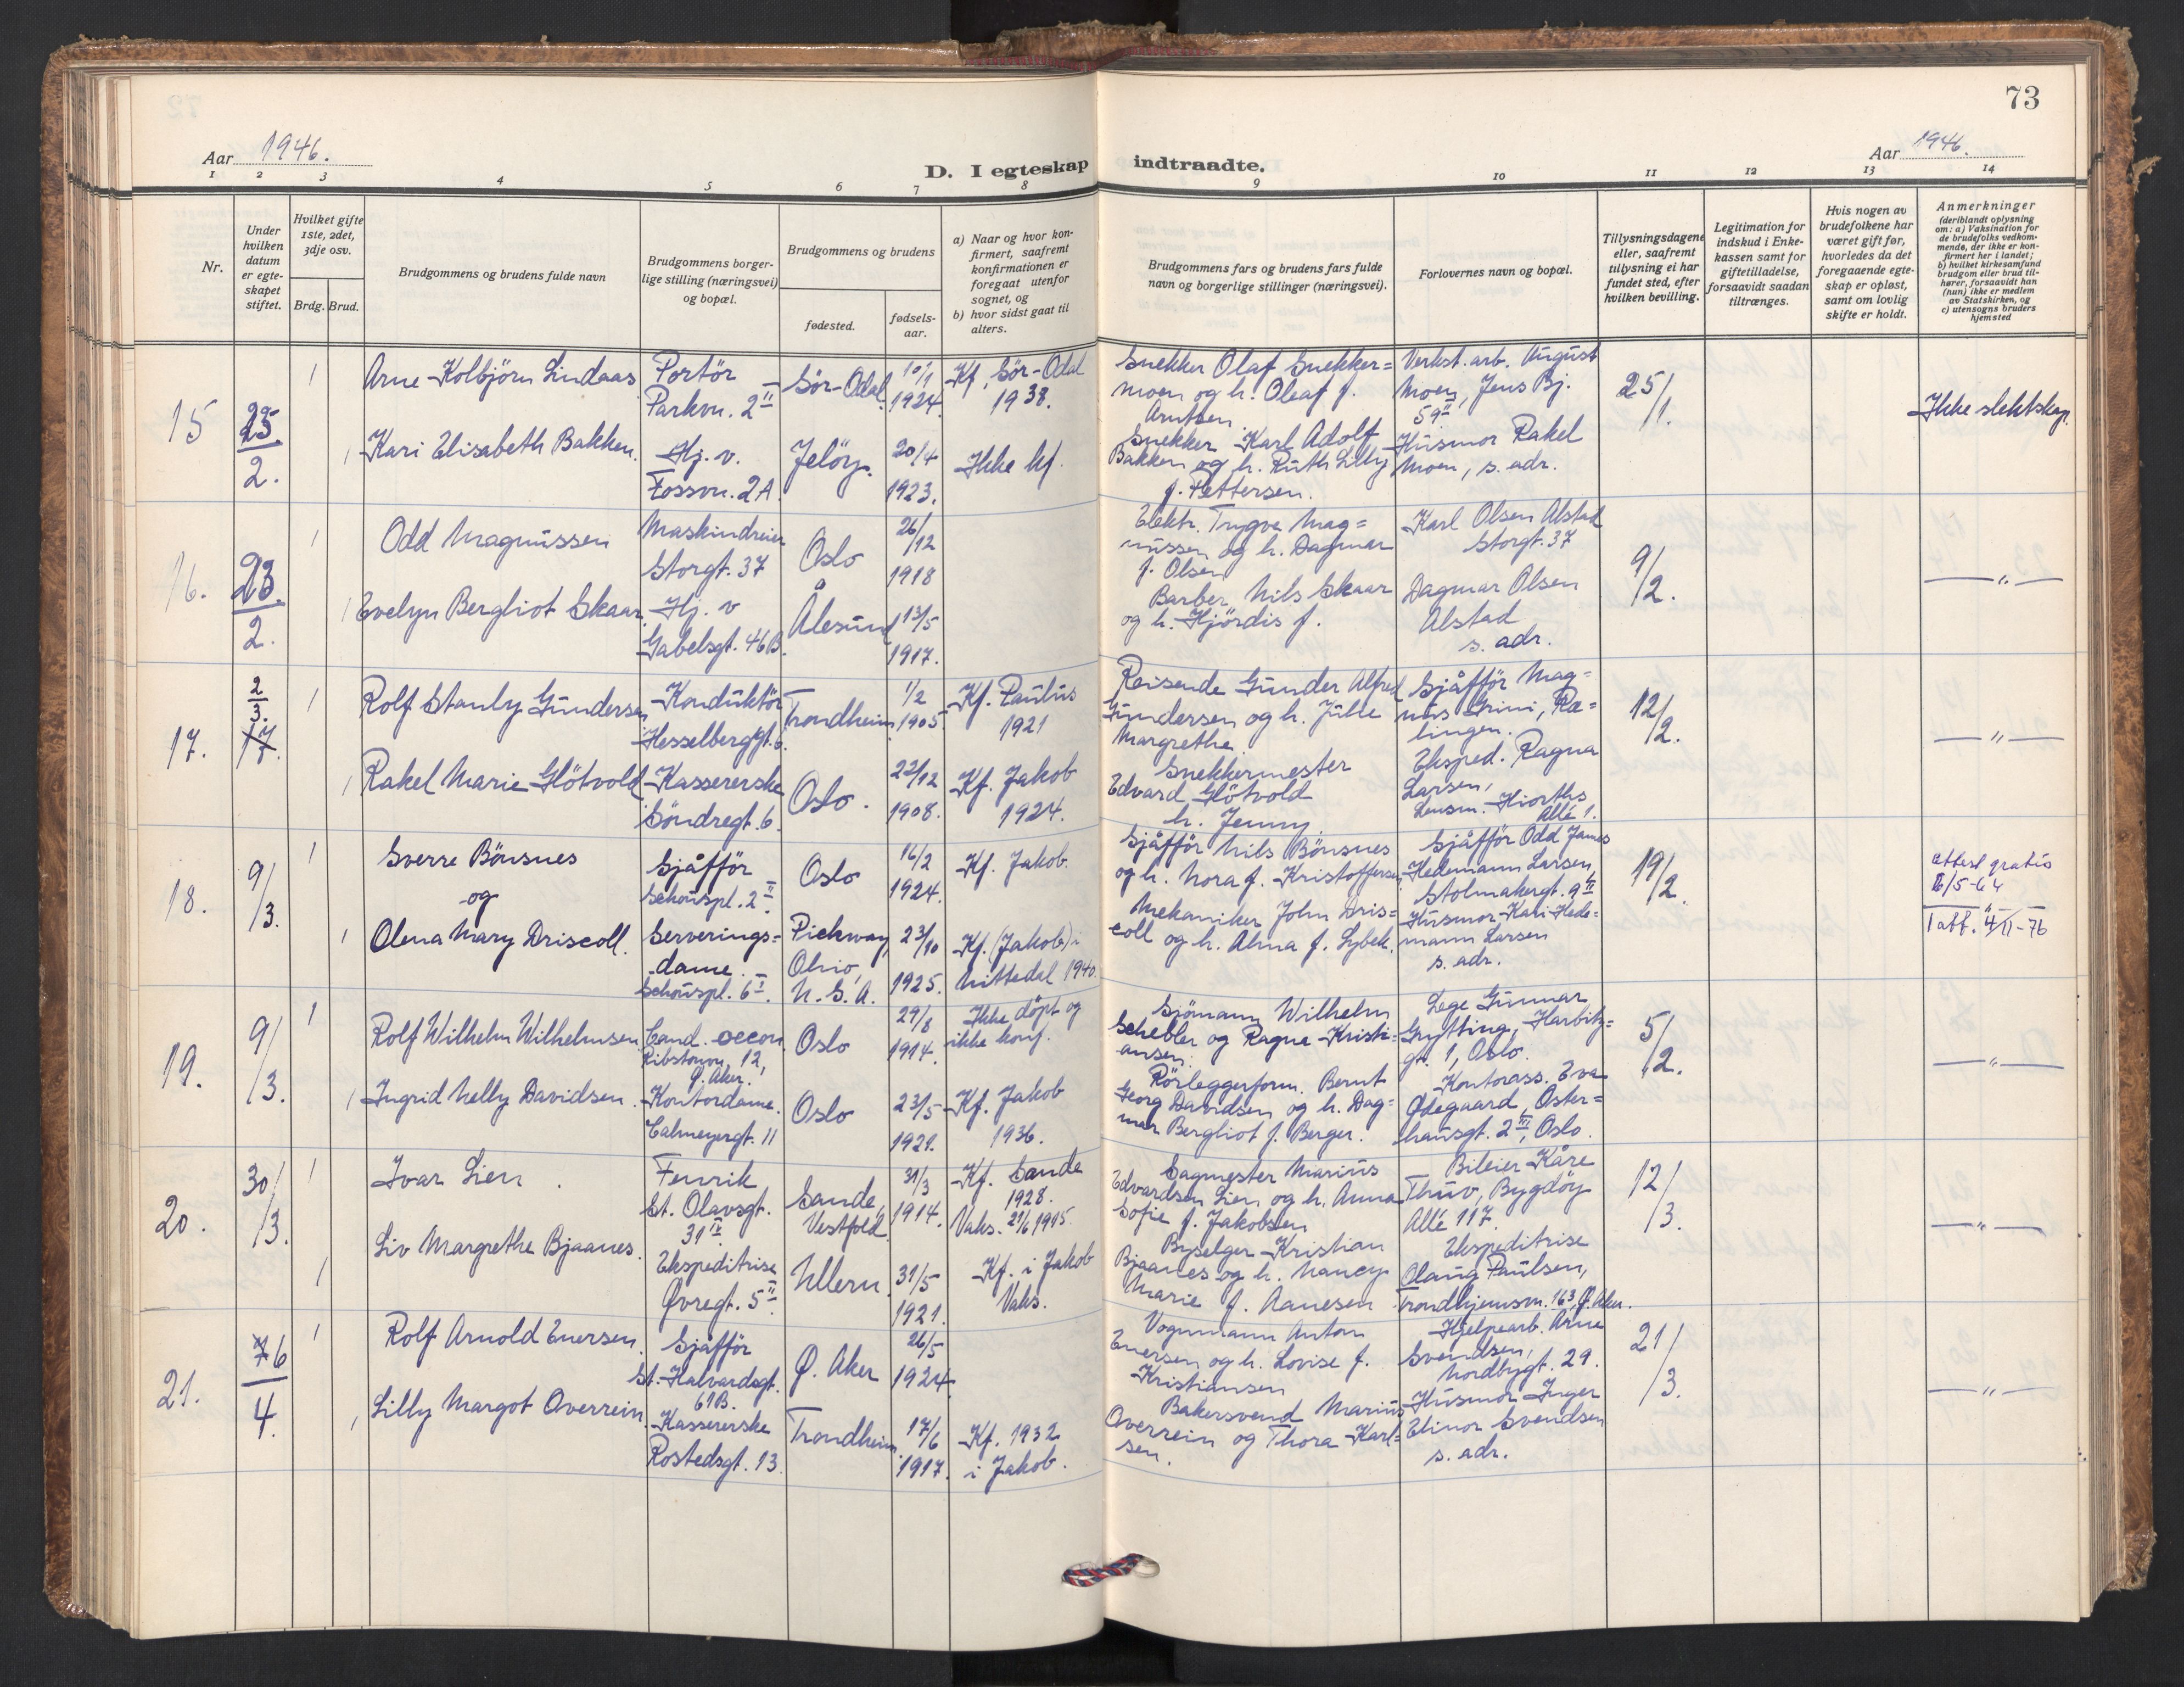 73
Aar 1946.
D. I egteskap indtraadte.
Aar 1946.
1 2 3 4 5 6 7 8 9 10 11 12 13 14
Nr.
Under hvilken datum er egte-skapet stiftet.
Hvilket gifte 1ste, 2det, 3dje osv.
Brdg. Brud.
Brudgommens og brudens fulde navn
Brudgommens borger-lige stilling (næringsvei) og bopæl.
Brudgommens og brudens
fødested.
fødsels-aar.
a) Naar og hvor kon-firmert, saafremt konfirmationen er foregaat utenfor sognet, og
b) hvor sidst gaat til alters.
Brudgommens fars og brudens fars fulde navn og borgerlige stillinger (næringsvei).
Forlovernes navn og bopæl.
Tillysningsdagene eller, saafremt tillysning ei har fundet sted, efter hvilken bevilling.
Legitimation for indskud i Enke-kassen samt for giftetilladelse, forsaavidt saadan tiltrænges.
Hvis nogen av brudefolkene har været gift før, hvorledes da det foregaaende egte-skap er opløst, samt om lovlig skifte er holdt.
Anmerkninger
(deriblandt oplysning om: a) Vaksination for de brudefolks vedkom-mende, der ikke er kon-firmert her i landet; b) hvilket kirkesamfund brudgom eller brud til-hører, forsaavidt han (hun) ikke er medlem av Statskirken, og c) utensogns bruders hjemsted
15
23/2.
1
Arne Kolbjörn Lindaas
Portör
Parkvn. 2 II
Sör-Odal
10/1
1924.
Kf. Sör-Odal
1938.
Snekker Olaf Snekker=
moen og h. Oleaf f.
Arntsen.
Verkst. arb. August
Moen, Jens Bj.
59 II
25/1.
Ikke slektskap.
1
Kari Elisabeth Bakken.
Hj. v.
Fossvn. 2A
Jelöy.
20/4
1923.
Ikke kf.
Snekker Karl Adolf
Bakken og h. Ruth Lilly
f. Pettersen.
Husmor Rakel
Moen, s. adr.
16.
23./2.
1
Odd Magnussen
Maskindreier
Storgt. 37
Oslo
26/12
1918
Elektr. Trygve Mag=
nussen og h. Dagmar
f. Olsen
Karl Olsen Alstad
Storgt. 37
9/2.
— " —
1
Evelyn Bergliot Skaar
Hj. v
Gabelsgt. 46B.
Ålesund
13/5
1917.
Barber Nils Skaar
og h. Hjördis f.
Dagmar Olsen
Alstad
s. adr.
17.
2/3.
17.
1
Rolf Stanly Gundersen
Konduktör
Hesselberggt. 6.
Trondheim
1/2
1905
Kf. Paulus
1921
Reisende Gunder Alfred
Gundersen og h. Julie
Margrethe.
Sjåfför Mag=
nus Grini, Ræ=
lingen.
12/2.
— " —
1
Rakel Marie Glötvold
Kassererske
Söndregt. 6.
Oslo.
22/12
1908.
Kf. Jakob
1924.
Snekkermester
Edvard Glötvold
h. Jenny.
Eksped. Ragna
Larsen,
Lensm. Hiorths
Allé 1.
18.
9/3.
1
Sverre Bönsnes
og
Sjåfför
Schouspl. 2 II
Oslo
16/2
1924.
Kf. Jakob.
Sjåfför Nils Bönsnes
og h. Nora f. Kristoffersen
Sjåfför Odd James
Hedemann Larsen,
Stolmakergt. 9 II
19/2.
Attest gratis
6/5-64
1 att. 4/11-76
1
Olena Mary Driscoll.
Serverings=
dame.
Schouspl. 6 I.
Pickway,
Ohio,
U. S. A.
23/10
1925.
Kf. (Jakob) i
Nittedal 1940.
Mekaniker John Dris=
coll og h. Alma f. Lybek.
Husmor Kari Hede=
mann Larsen
s. adr.
19.
9/3.
1
Rolf Wilhelm Wilhelmsen
Cand. occon.
Ribstonvn. 12,
Ø. Aker.
Oslo
29/8
1914.
Ikke döpt og
ikke konf.
Sjömann Wilhelm
Schebler og Ragna Kristi=
ansen.
Lege Gunnar
Grytting, Harbitz=
gt. 1, Oslo.
5/2.
— " —
1
Ingrid Nelly Davidsen.
Kontordame.
Calmeyergt. 11
Oslo
23/5
1921.
Kf. Jakob
1936.
Rörleggerform. Bernt
Georg Davidsen og h. Dag=
mar Bergliot f. Berger.
Kontorass. Eva
Ødegaard, Oster=
hausgt. 2 III, Oslo.
20.
30/3.
1
Ivar Lien.
Fenrik
St. Olavsgt.
31 IV.
Sande,
Vestfold
31/3
1914.
Kf. Sande
1928.
Vaks. 21/6 1915.
Sagmester Marius
Edvardsen Lien og h. Anna
Sofie f. Jakobsen
Bileier Kåre
Thuv, Bygdöy
Allé 117.
12/3.
— " —
1
Liv Margrethe Bjaanes.
Ekspeditrise
Øvregt. 5 II.
Ullern
31/5
1921.
Kf. i Jakob
Vaks.
Byselger Kristian
Bjaanes og h. Nancy
Marie f. Aanesen
Ekspeditrise
Olaug Paulsen,
Trondhjemsvn. 163, Ø. Aker.
21.
6/4.
1
Rolf Arnold Enersen.
Sjåfför
St. Halvardsgt.
61B.
Ø. Aker
26/5
1924.
Vognmann Anton
Enersen og h. Lovise f.
Kristiansen
Hjelpearb. Arne
Svendsen,
Nordbygt. 29.
21/3.
— " —
1
Lilly Margot Overrein.
Kassererske
Rostedsgt. 13.
Trondheim.
17/6
1917.
Kf. 1932
i Jakob.
Bakersvend Marius
Overrein og Thora Karl=
sen.
Husmor Inger
Elinor Svendsen
s. adr.